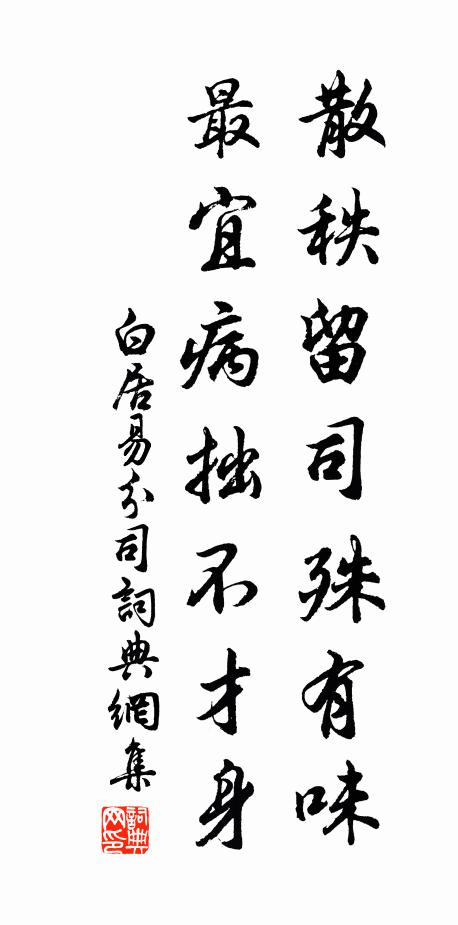 散秩留司殊有味
最宜病拙不才身
白居易分司詞典網集
詞典网印